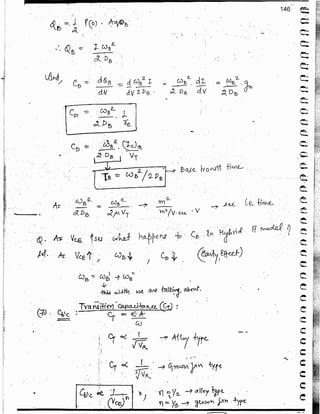 146
Q_B = 1/2 P(0) · Aq W_B
∴ Q_B = I W_B² / 2 D_B
And, C_D = dQ_B/dV = d W_B² I / dV 2 D_B = W_B²/2 D_B · dI/dV = W_B²/2 D_B · g_m
C_D = W_B²/2 D_B · 1/r_e
C_D = W_B² (I_C)_Q / 2 D_B V_T
τ_B = W_B²/2 D_B → Base transit time
As W_B²/2 D_B = W_B²/2 μ V_T → m² / m²/V-sec · V → sec i.e. time.
Q. As V_CE ↑ses what happens to C_D in Hybrid π model?
As V_CE ↑, W_B ↓, C_D ↓. (Early Effect)
W_B = W_B' + W_B''
this width we are talking about.
Transition capacitance (C_T) :
C_T = ε A / W
C_T ∝ 1/√V_R → Alloy type
C_T ∝ 1/∛V_R → Grown jxn type
C_b'c ∝ 1/(V_CE)^n , n = 1/2 → alloy type
n = 1/3 → grown jxn type